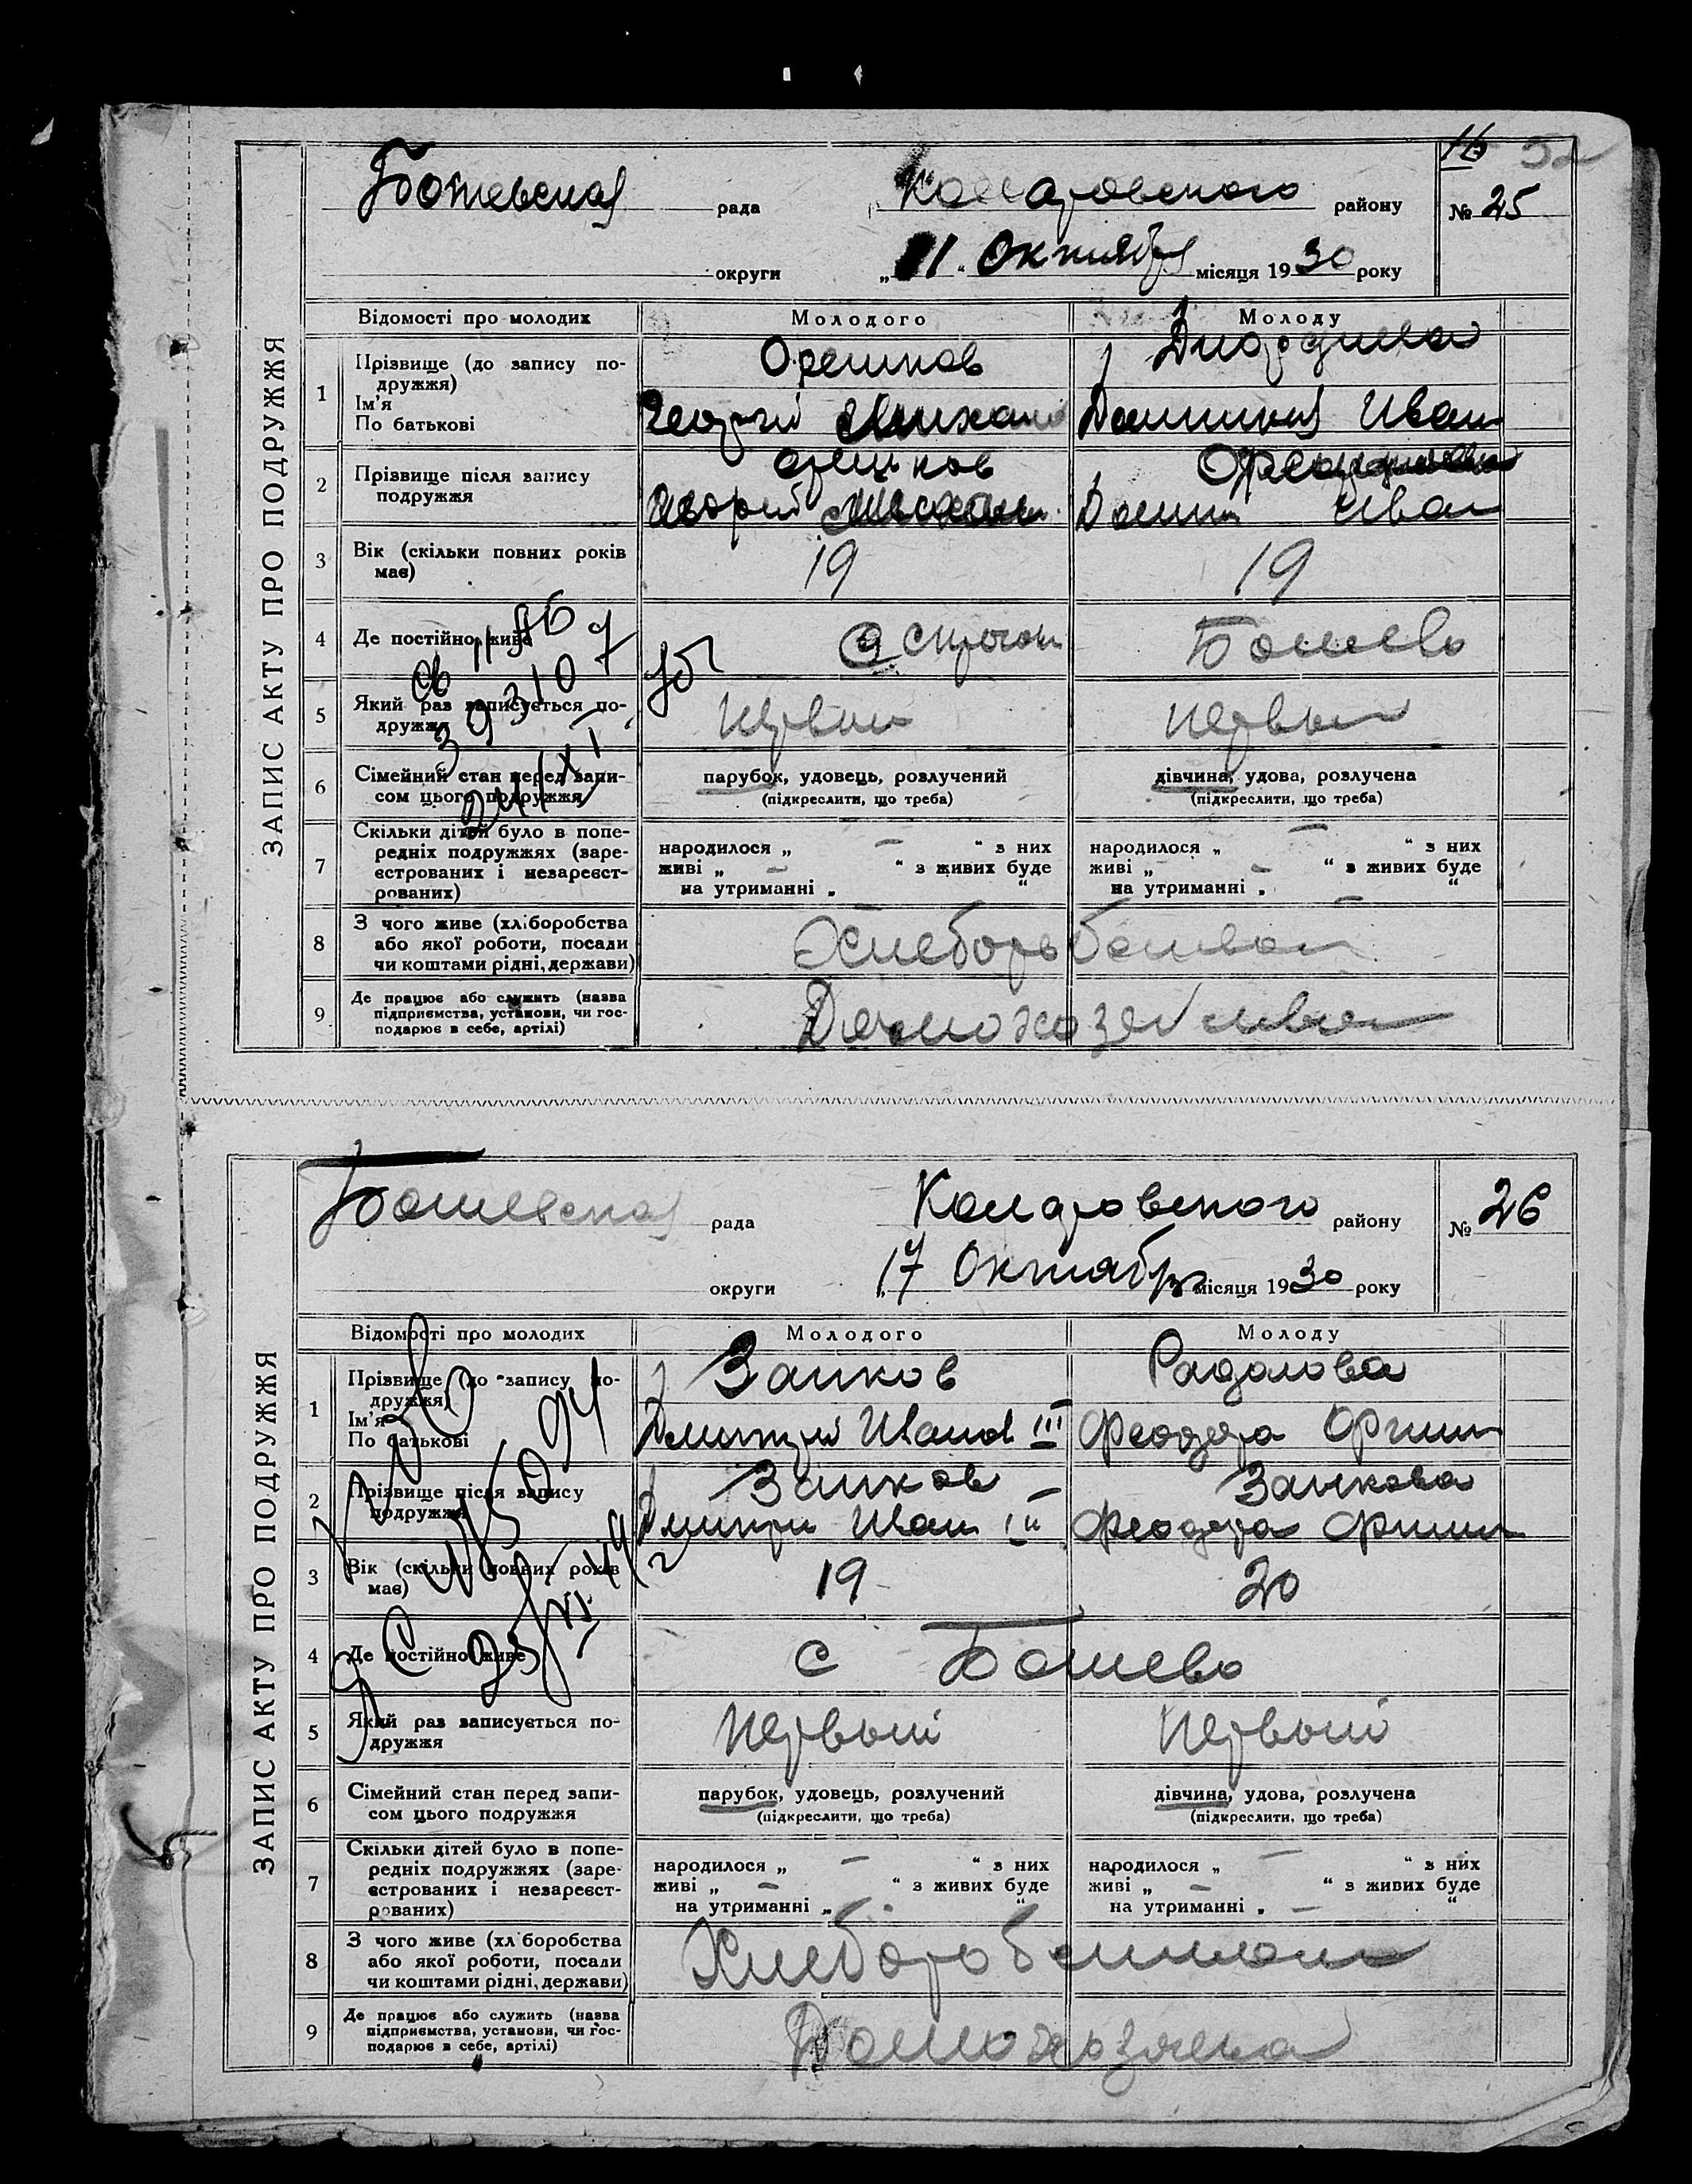 16
Ботевская рада Коларовского району № 25
округи „11“ Октября місяця 1930 року
ЗАПИС АКТУ ПРО ПОДРУЖЖЯ
Відомості про молодих Молодого Молоду
1 Прізвище (до запису по-
дружжя)
Ім'я
По батькові
Орешков
Георгий Михаил
Домникия Иван
2 Прізвище після запису
подружжя
Орешков
Георгий Михаил
Домни Иван
3 Вік (скільки повних років
має)
19 19
4 Де постійно живе
Ботево
5 Який раз записується по-
дружжя
Первый Первый
6 Сімейний стан перед запи-
сом цього подружжя
парубок, удовець, розлучений
(підкреслити, що треба)
дівчина, удова, розлучена
(підкреслити, що треба)
7 Скільки дітей було в попе-
редніх подружжях (заре-
єстрованих і незареєст-
рованих)
народилося „ — “ з них
живі „ — “ з живих буде
на утриманні „ “
народилося „ — “ з них
живі „ — “ з живих буде
на утриманні „ — “
8 З чого живе (хліборобства
або якої роботи, посади
чи коштами рідні, держави)
Хлеборобство
9 Де працює або служить (назва
підприємства, установи, чи гос-
подарює в себе, артілі)
Домохозяйство
Ботевская рада Коларовского району № 26
округи „17 Октября місяця 1930 року
ЗАПИС АКТУ ПРО ПОДРУЖЖЯ
Відомості про молодих Молодого Молоду
1 Прізвище (до запису по-
дружжя)
Ім'я
По батькові
Занков
Дмитрий Иванов III
Радолова
Феодора
2 Прізвище після запису
подружжя
Занков
Дмитри Иван III
Занкова
Феодора
3 Вік (скільки повних років
має)
19 20
4 Де постійно живе
с Ботево
5 Який раз записується по-
дружжя
Первый Первый
6 Сімейний стан перед запи-
сом цього подружжя
парубок, удовець, розлучений
(підкреслити, що треба)
дівчина, удова, розлучена
(підкреслити, що треба)
7 Скільки дітей було в попе-
редніх подружжях (заре-
єстрованих і незареєст-
рованих)
народилося „ — “ з них
живі „ — “ з живих буде
на утриманні „ “
народилося „ — “ з них
живі „ — “ з живих буде
на утриманні „ — “
8 З чого живе (хліборобства
або якої роботи, посади
чи коштами рідні, держави)
Хлеборобством
9 Де працює або служить (назва
підприємства, установи, чи гос-
подарює в себе, артілі)
Домохозяева